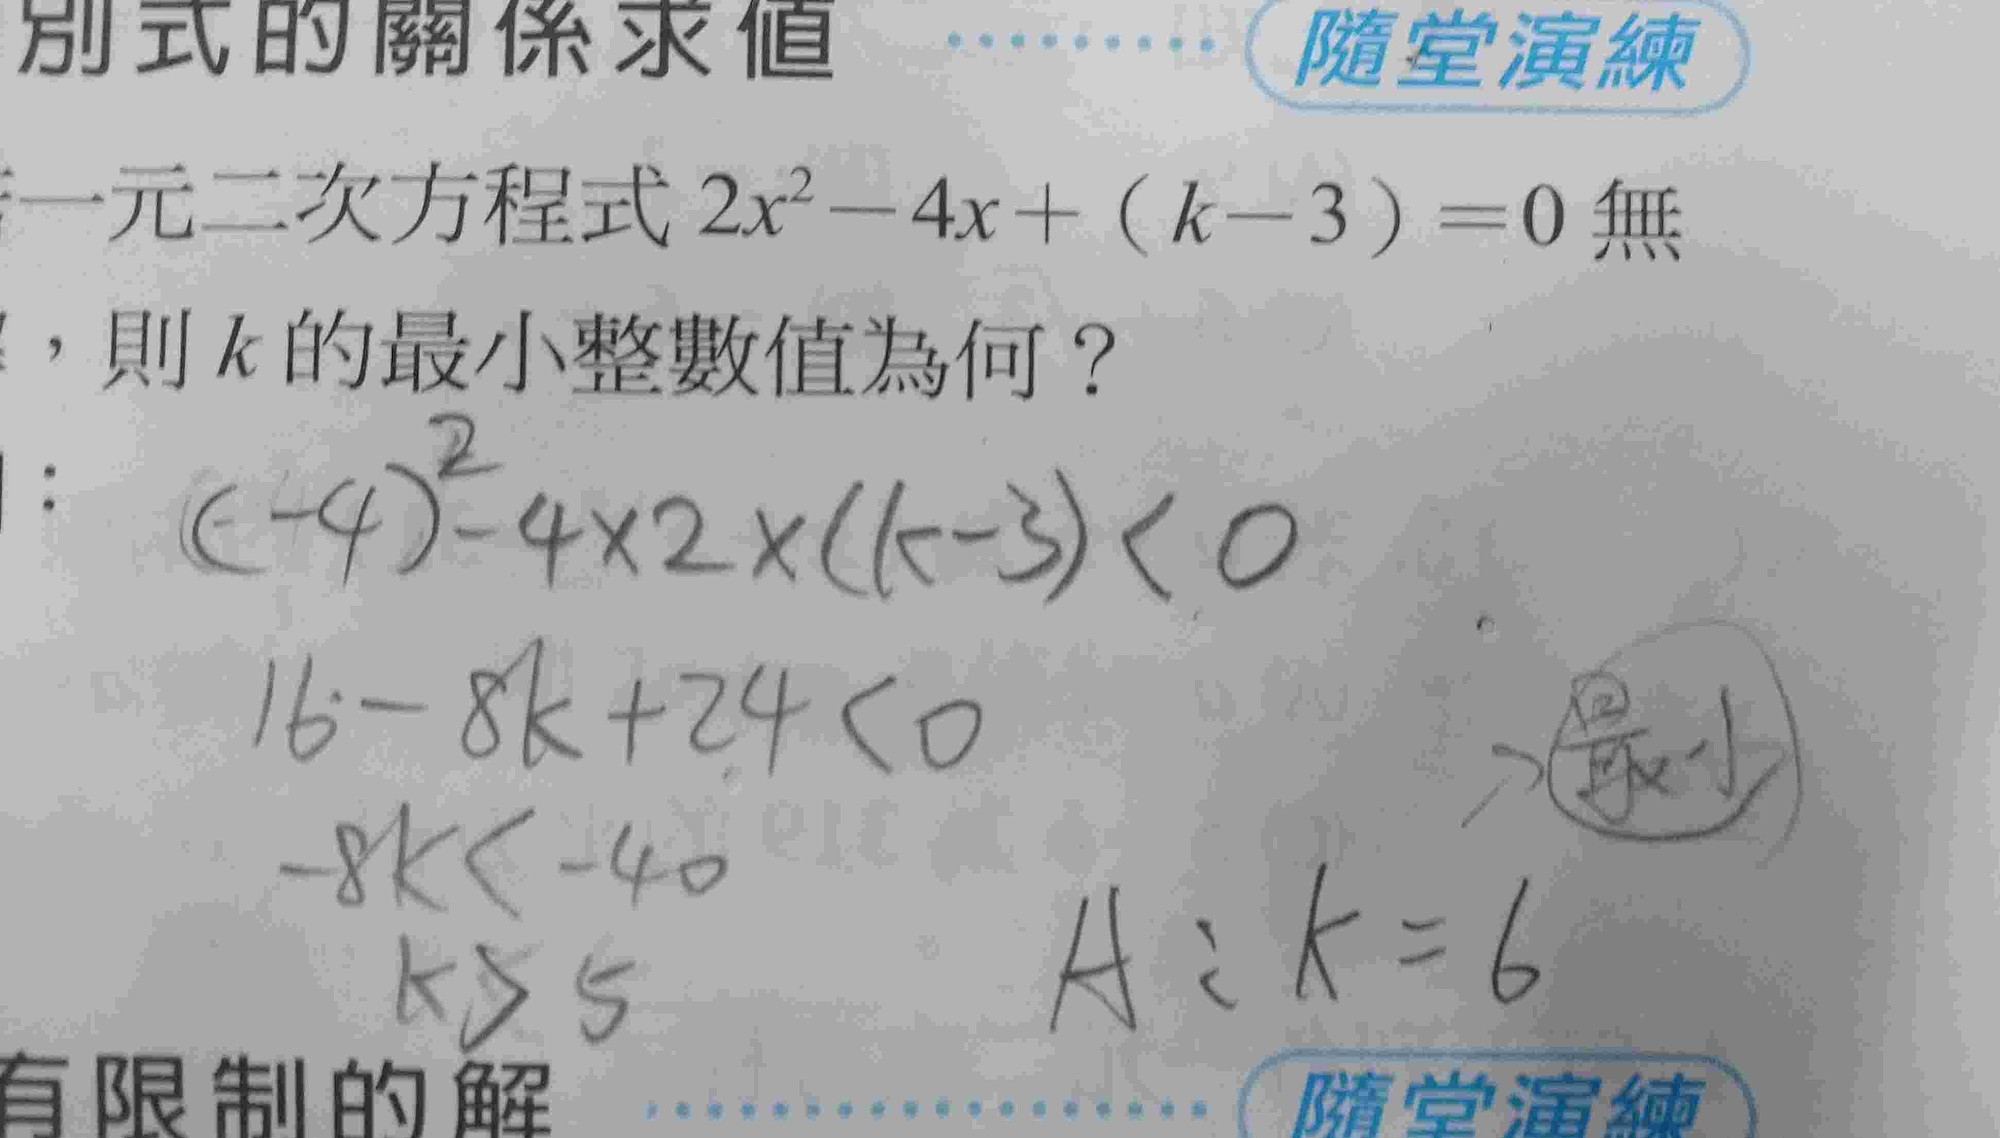 別式的關係求值 ⋯⋯⋯ 隨堂演練
一元二次方程式 2x²－4x＋（k－3）＝0 無
，則 k 的最小整數值為何？
：
(-4)²-4×2×(k-3)<0
16-8k+24<0
最小
-8k<-40
k>5
A：k=6
有限制的解 ⋯⋯⋯ 隨堂演練